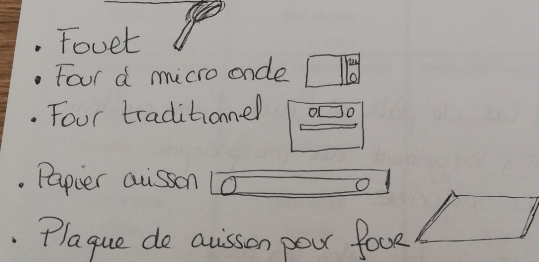 . Fouet
. Four à micro onde
. Four traditionnel
. Papier cuisson
. Plaque de cuisson pour four